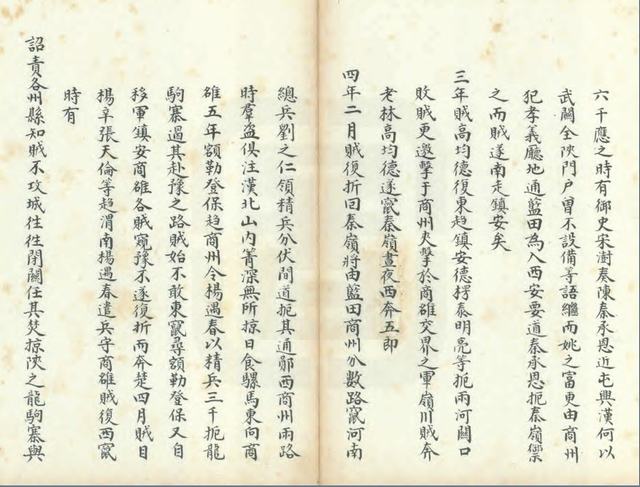 六千應之時有御史宋澍奏陳秦承恩近屯興漢何以
武關全陜門户曽不設備等語繼而姚之富更由商州
犯孝義廳地通藍田為入西安要道秦承恩扼秦嶺禦
之而賊遂南走鎮安矣
三年賊高均德復東趋鎮安德楞泰明亮等扼兩河關口
敗賊更邀擊于商州夾擊於商雒交界之軍嶺川賊奔
老林高均德遂竄秦嶺晝夜西奔五郎
四年二月賊復折回秦嶺將由藍田商州分數路竄河南
總兵劉之仁領精兵分伏間道扼其通鄖西商州兩路
時羣盗俱注漢北山内菁深無所掠日食騾馬東向商
雒五年額勒登保趋商州令楊遇春以精兵三千扼龍
駒寨遏其赴豫之路賊始不敢東竄尋額勒登保又自
移軍鎮安商雒各賊窺豫不遂復折而奔楚四月賊目
楊辛張天倫等趋渭南楊遇春遣兵守商雒賊復西竄
時有
詔責各州縣知賊不攻城往往閉關任其焚掠陜之龍駒寨與